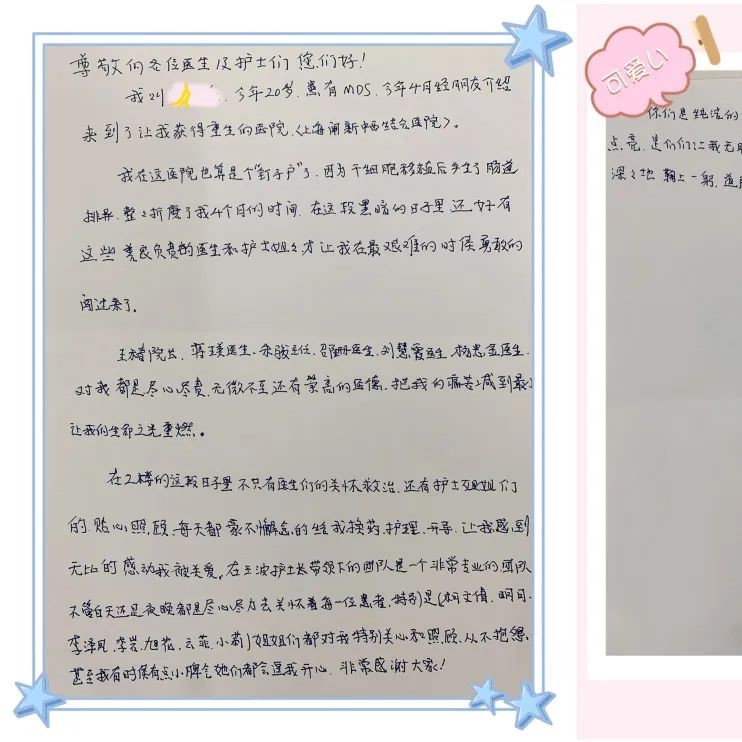 尊敬的各位医生及护士们 您们好!
我叫 . 今年20岁. 患有MDS. 今年4月经朋友介绍
来到了让我获得重生的医院.《上海闸新中西结合医院》。
我在这医院也算是个"钉子户"了. 因为干细胞移植后产生了肠道
排异. 整整折磨了我4个月的时间. 在这段黑暗的日子里 还好有
这些 善良负责的医生和护士姐姐 才让我在最艰难的时候勇敢的
闯过来了.
院长. 蒋瑛医生. 主任. 医生. 刘慧霞医生. 杨忠金医生.
对我都是尽心尽责. 无微不至 还有崇高的医德. 把我的痛苦减到最
让我的生命之光重燃。
在2楼的这段日子里 不只有医生们的关怀救治. 还有护士姐姐们
的 贴心照顾. 每天都毫不懈怠的给我换药. 护理. 开导. 让我感到
无比的感动我被关爱。在王波护士长带领下的团队是一个非常专业的团队
不管白天还是夜晚都是尽心尽力去关怀着每一位患者. 特别是(柯文倩. 明月.
李泽凡. 李岩. 旭茹. 云菲. 小莉)姐姐们都对我特别关心和照顾. 从不抱怨.
甚至我有时候有点小脾气她们都会逗我开心. 非常感谢大家!
可爱心
你们是纯洁的
点亮. 是你们让我无
深深地 鞠上一躬.